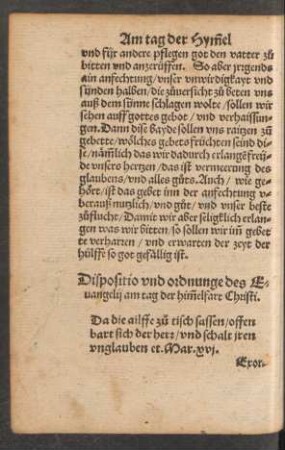 Am tag der Hym̃el
vnd für andere pflegen got den vatter zů
bitten vnd anzerůffen. So aber jrgends
ain anfechtung / vnser vnwirdigkayt vnd
sünden halben / die zůuersicht zů beten vns
auß dem synne schlagen wolte / sollen wir
sehen auff gottes gebot / vnd verhaissun-
gen. Dann dise bayde sollen vns raitzen zů
gebette / wölches gebets früchten seind di-
se / näm̃lich das wir dadurch erlangẽ freü-
de vnsers hertzen / das ist vermerung des
glaubens / vnd alles gůts. Auch / wie ge-
hört / ist das gebet inn der anfechtung v-
beraus nutzlich / vnd gůt / vnd vnser beste
zůflucht / Damit wir aber seligklich erlan-
gen was wir bitten / so sollen wir im̃ gebet
te verharren / vnd erwarten der zeyt der
hülffe so got gefällig ist.
Dispositio vnd ordnunge des E-
uangelij am tag der him̃elfart Christi.
Da die ailffe zů tisch sassen / offen
bart sich der herr / vnd schalt jren
vnglauben ꝛc. Mar. xvj.
Exor-